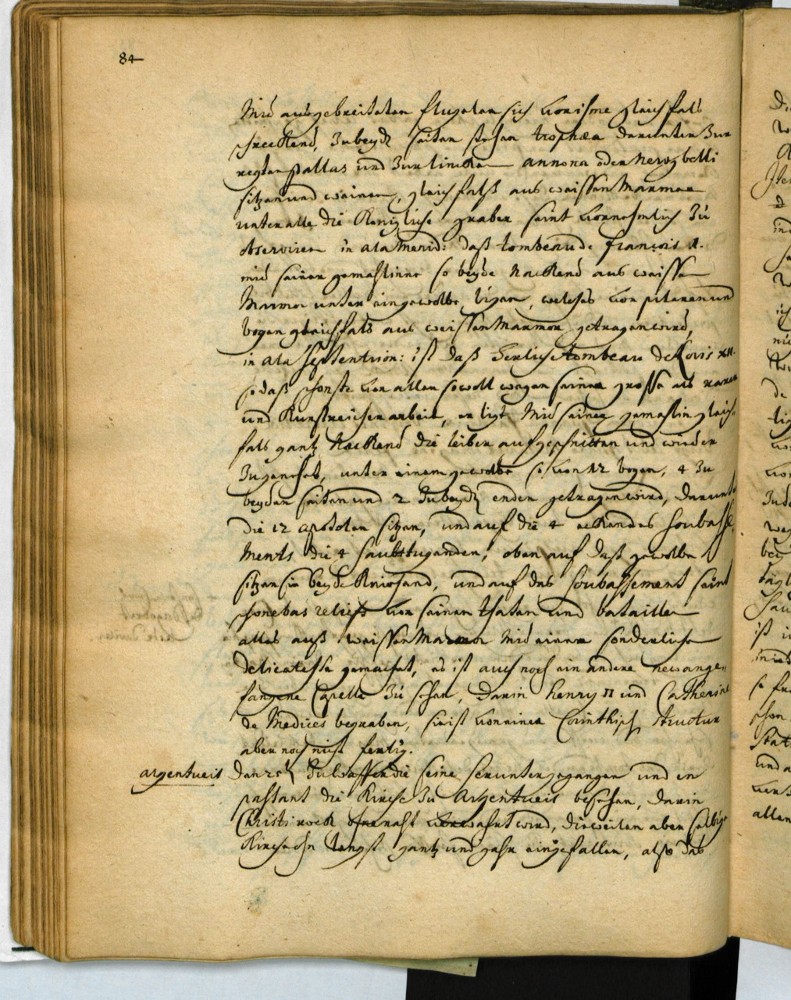 84
Mit ausgebreiteten flugelen sich vorisme gleichfals
streckend, Zu beyde seiten stehen trophæa darunter Zur
rechten pallas und Zur lincken annona oder nervg belli
sitzen und weinen, gleichfalß aus weissen Marmor
unter alle die Konigliche graber seint vornehmlich Zu
observiren in ala merid: daß tombeau de françois 1.
mit seiner gemahlinne so beyde nackend aus weissen
Marmor unter eingewolbe ligen, welches von pilaren und
bogen gleichfals aus weissen Marmor getragen wird,
in ala septentrion: ist daß herliche tombeau de Lovis XII.
so daß schonste von allen sowoll wegen seiner grosse als raren
und Kunstreichen arbeit, er ligt Mit seiner gemahlin gleich
fals gantz nackend die leiber aufgeschnitten und wieder
Zugenehet, unter einem gewolbe so von 12 bogen, 4 Zu
beyden seiten und 2 Zu beyde enden getragen wird, darunter
die 12 apostolen sitzen, und auf die 4 ecken des soubasse
ments die 4 haubttugenden, oben auf daß gewolbe
sitzen sie beyde Kniehend, und auf das soubassement seint
schone bas reliefs von seinen thaten und bataillen
alles auß weissen Marmor Mit einer sonderlichen
delicatesse gemachet, es ist auch noch ein andere neu ange
fangene Capelle Zu sehen, darin henry II und Catherine
de Medices begraben, sie ist von einer Corinthisch structur
aber noch nicht fertig.
argentueil den 25 Zu wasser die seine herunter gegangen und en
passant die Kirche Zu Argentueil besehen, darin
Christi rock verwahrt wird, dieweilen aber selbige
Kirche schon langst gantz und gahr eingefallen, alß das